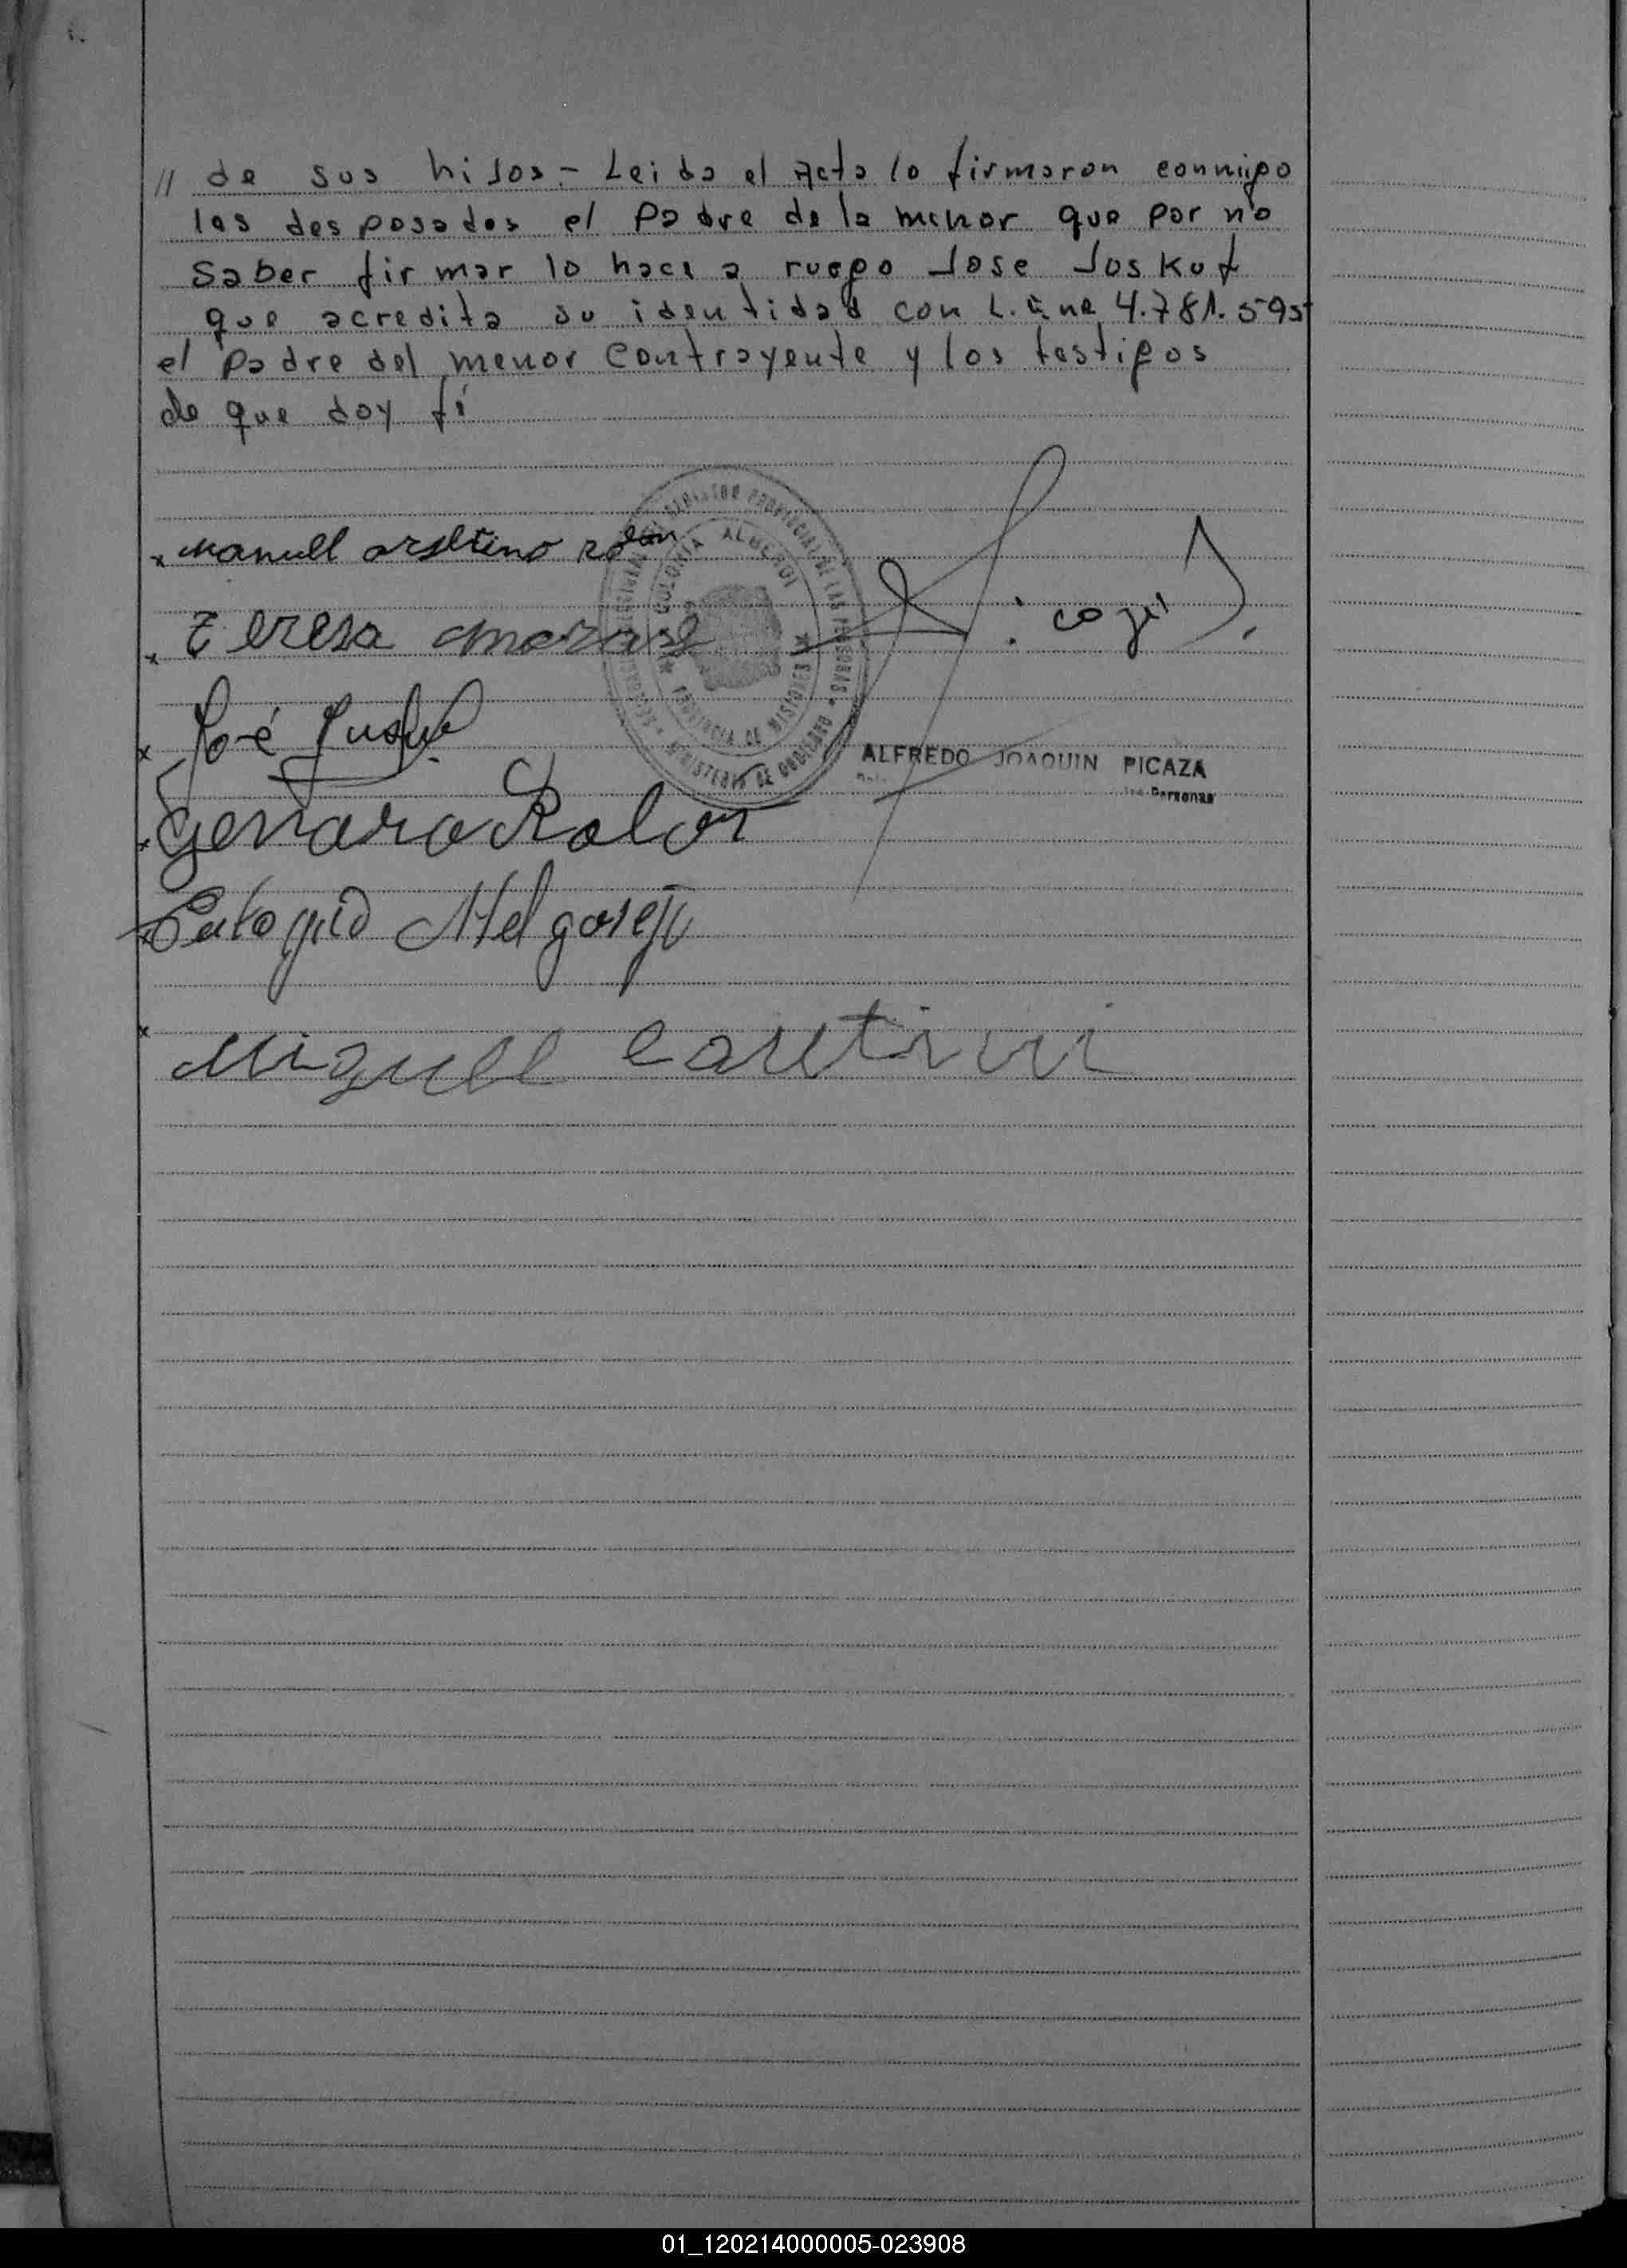 // de sus hijos.- Leida el Acta lo firmaron conmigo
los desposados el Padre de la menor que por no
saber firmar lo hace a ruego Jose Juskuf
que acredita su identidad con L. E. nº 4.781.595
el Padre del menor contrayente y los testigos
de que doy fé
x Manuel
x Teresa
x José
ALFREDO JOAQUIN PICAZA
Personas
COLONIA ALBERDI
PROVINCIA DE MISIONES
MINISTERIO DE GOBIERNO
REGISTRO PROVINCIAL DE LAS PERSONAS
x Genaro Rolon
x Eulogio Melgarejo
x Miguel
01_120214000005-023908